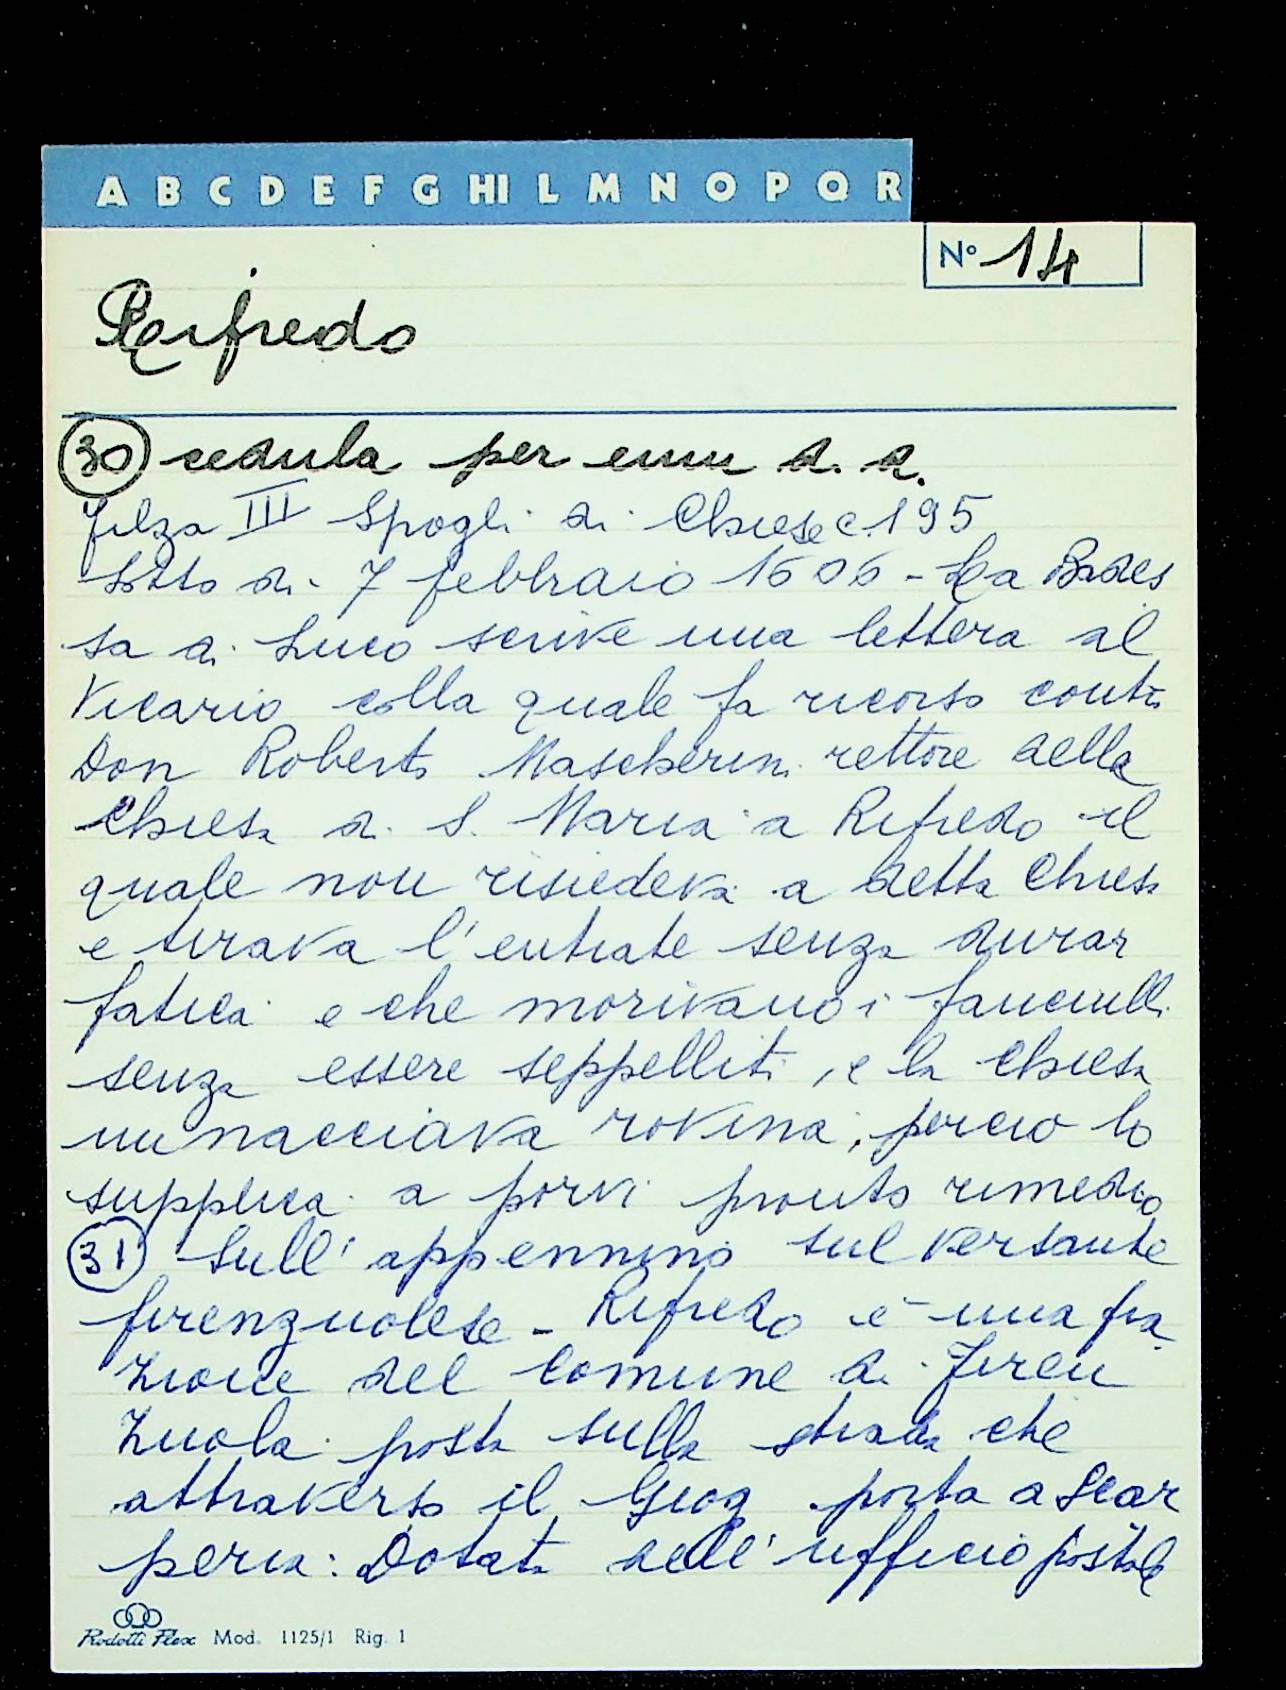 A B C D E F G HI L M N O P Q R
N° 14
Reifredo
30 cedula per d. d.
filza III Spogli di Chiese c. 195
Sotto di 7 febbraio 1606 - La Bades
sa di Luco scrive una lettera al
Vicario colla quale fa ricorso contro
Don Roberto Mascherini rettore della
Chiesa di S. Maria a Rifredo il
quale non risiedeva a detta Chiesa
e tirava l'entrate senza durar
fatica e che morivano i fanciulli
senza essere seppelliti, e la Chiesa
minacciava rovina, perciò lo
supplica a porvi pronto rimedio
31 Sull'appennino sul versante
firenzuolese - Rifredo è una fra
zione del Comune di Firen
zuola posta sulla strada che
attraverso il Giogo porta a Scar
peria: Dotata dell'ufficio postale
Rodotti Flex Mod. 1125/1 Rig. 1